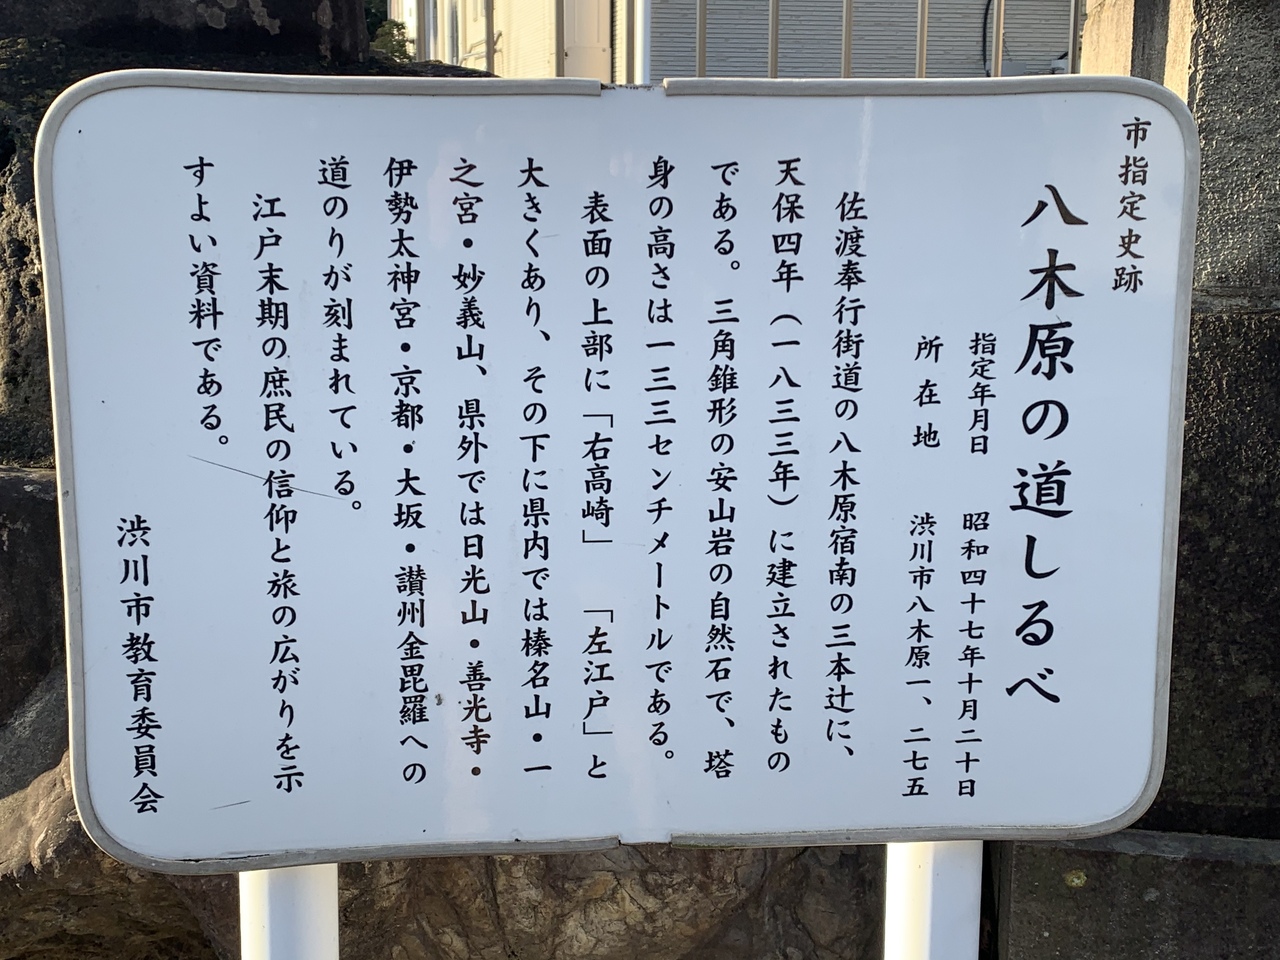 市指定史跡
八木原の道しるべ
指定年月日 昭和四十七年十月二十日
所在地 渋川市八木原一、二七五
佐渡奉行街道の八木原宿南の三本辻に、
天保四年（一八三三年）に建立されたもの
である。三角錐形の安山岩の自然石で、塔
身の高さは一三三センチメートルである。
表面の上部に「右高崎」「左江戸」と
大きくあり、その下に県内では榛名山・一
之宮・妙義山、県外では日光山・善光寺・
伊勢太神宮・京都・大坂・讃州金毘羅への
道のりが刻まれている。
江戸末期の庶民の信仰と旅の広がりを示
すよい資料である。
渋川市教育委員会